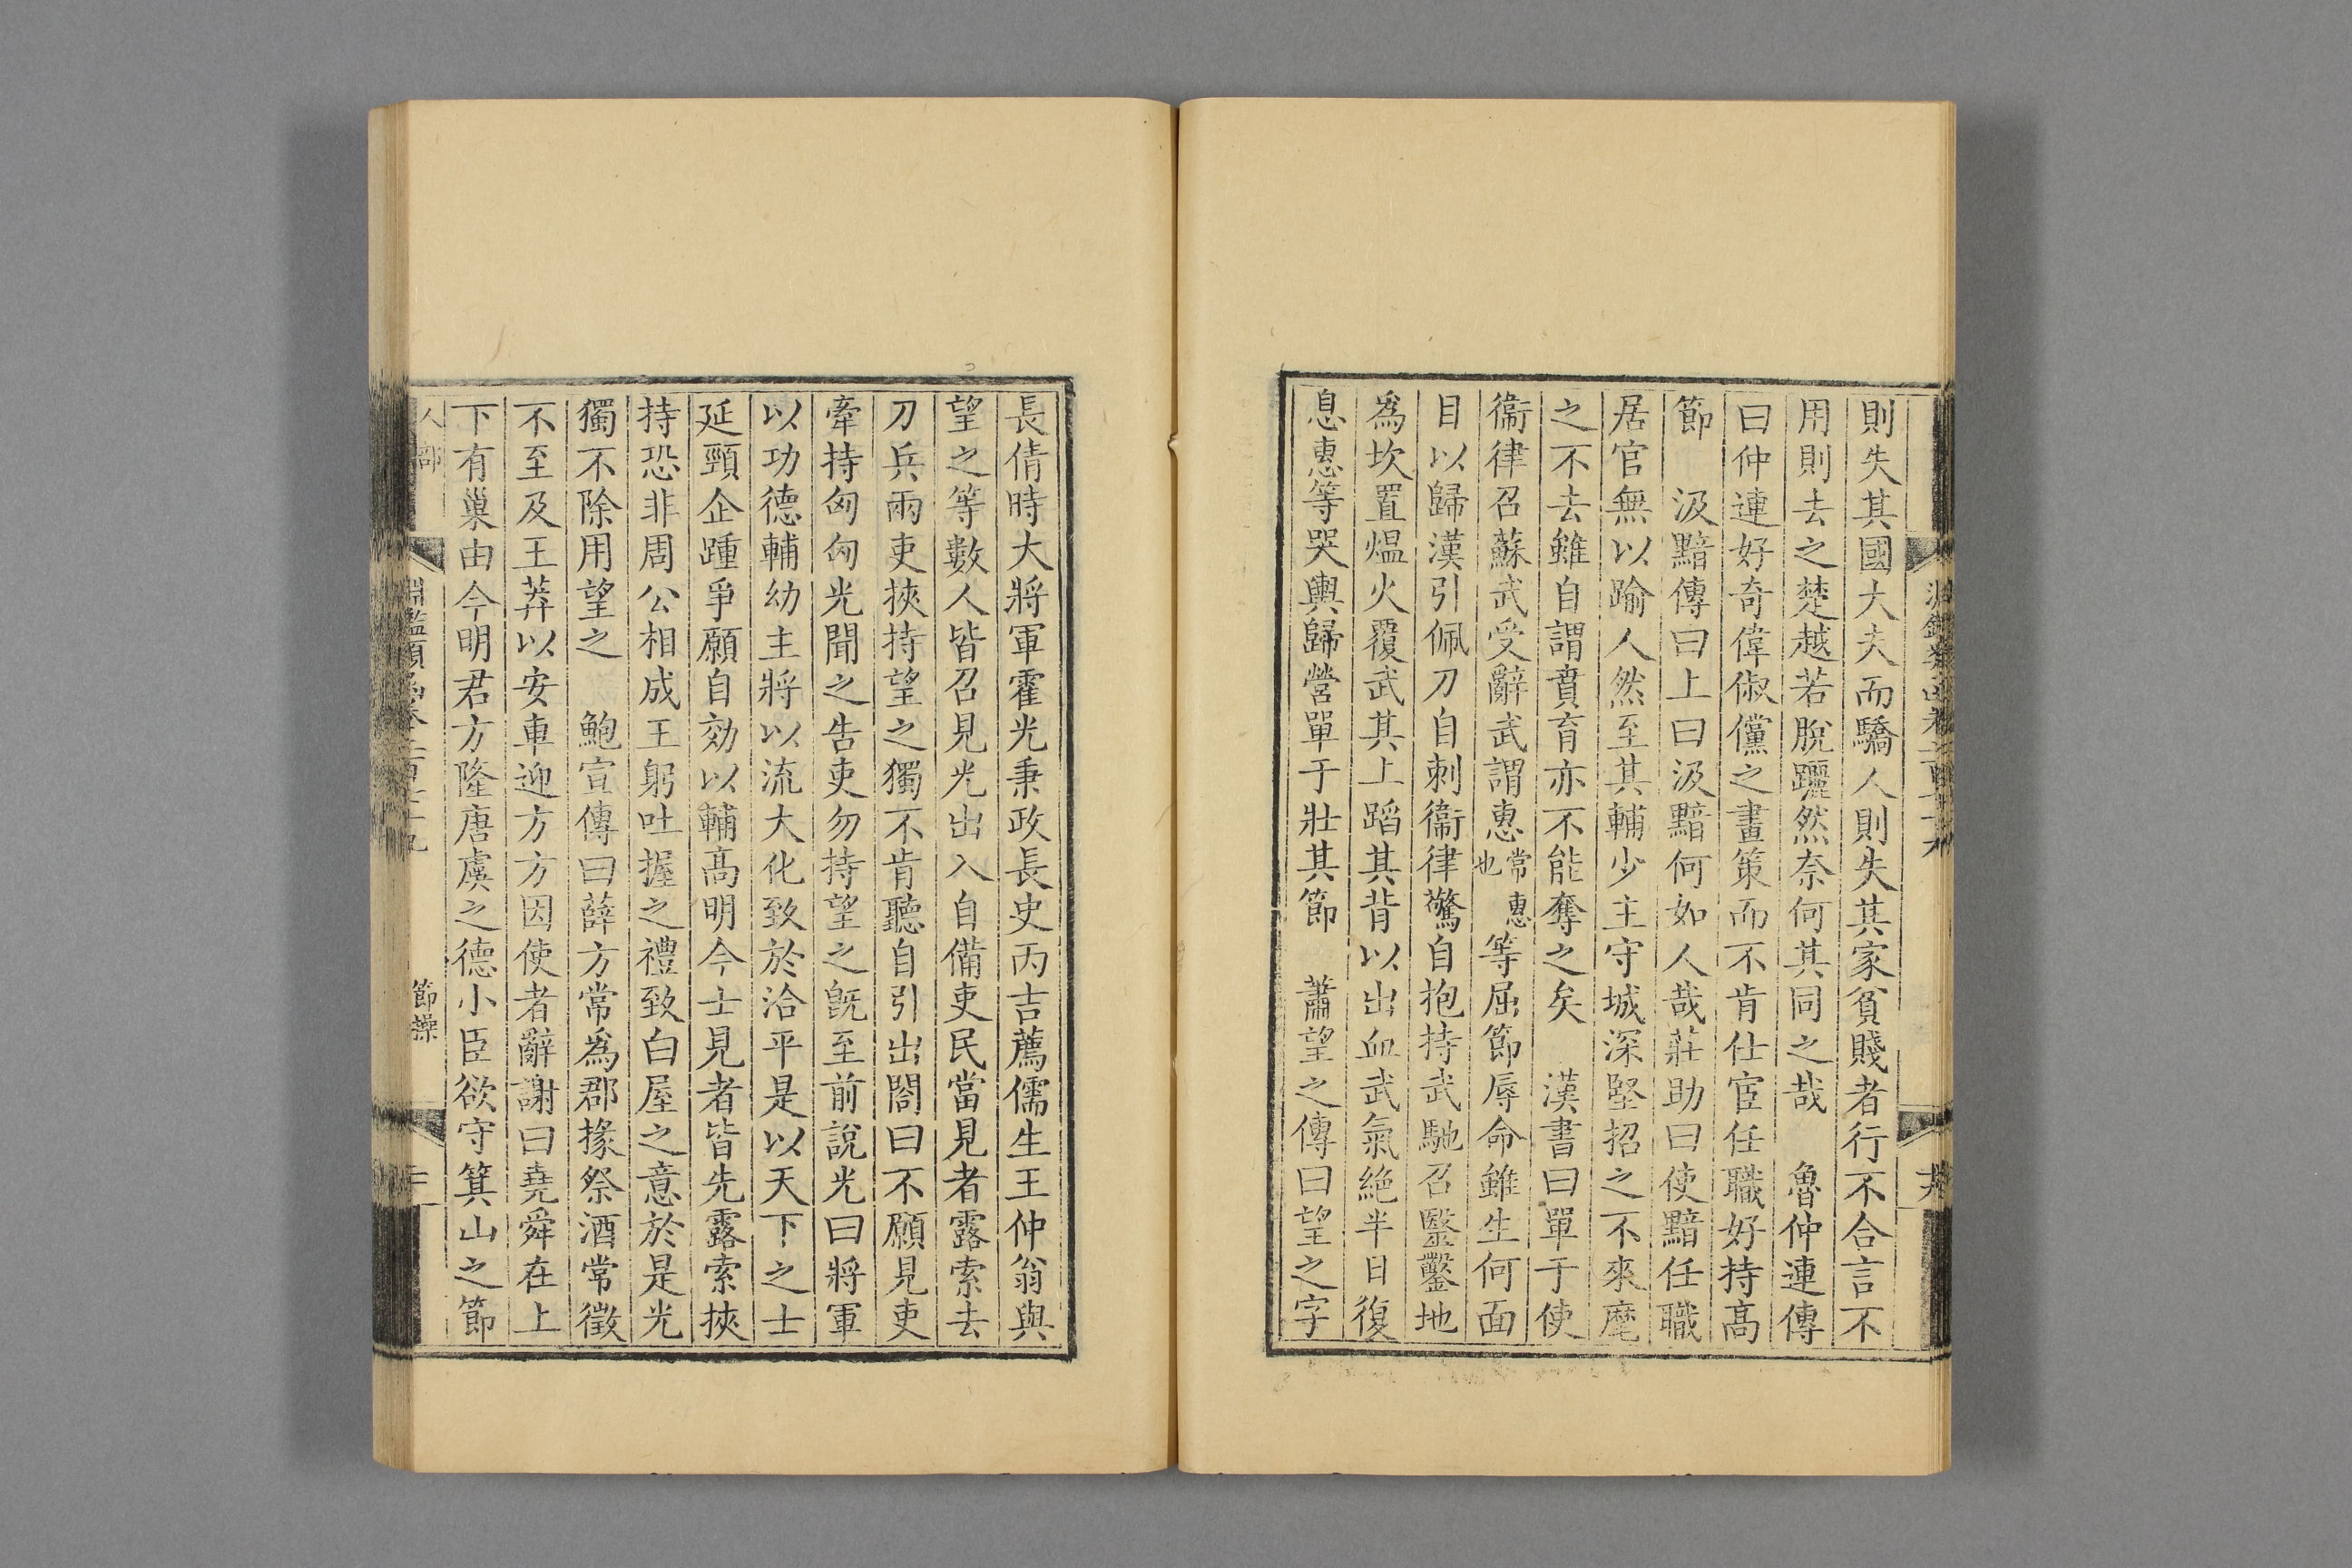 則失其國大夫而驕人則失其家貧賤者行不合言不
用則去之楚越若脫躧然奈何其同之哉　魯仲連傳
曰仲連好奇偉俶儻之畫策而不肯仕宦任職好持高
節　汲黯傳曰上曰汲黯何如人哉莊助曰使黯任職
居官無以踰人然至其輔少主守城深堅招之不來麾
之不去雖自謂賁育亦不能奪之矣　漢書曰單于使
衞律召蘇武受辭武謂惠常惠也等屈節辱命雖生何面
目以歸漢引佩刀自刺衞律驚自抱持武馳召毉鑿地
爲坎置熅火覆武其上蹈其背以出血武氣絕半日復
息惠等哭輿歸營單于壯其節　蕭望之傳曰望之字
長倩時大將軍霍光秉政長史丙吉薦儒生王仲翁與
望之等數人皆召見光出入自備吏民當見者露索去
刀兵兩吏挾持望之獨不肯聽自引出閤曰不願見吏
牽持匈匈光聞之告吏勿持望之旣至前說光曰將軍
以功德輔幼主將以流大化致於洽平是以天下之士
延頸企踵爭願自効以輔高明今士見者皆先露索挾
持恐非周公相成王躬吐握之禮致白屋之意於是光
獨不除用望之　鮑宣傳曰薛方常爲郡掾祭酒常徵
不至及王莽以安車迎方方因使者辭謝曰堯舜在上
下有巢由今明君方隆唐虞之德小臣欲守箕山之節
人部
節操